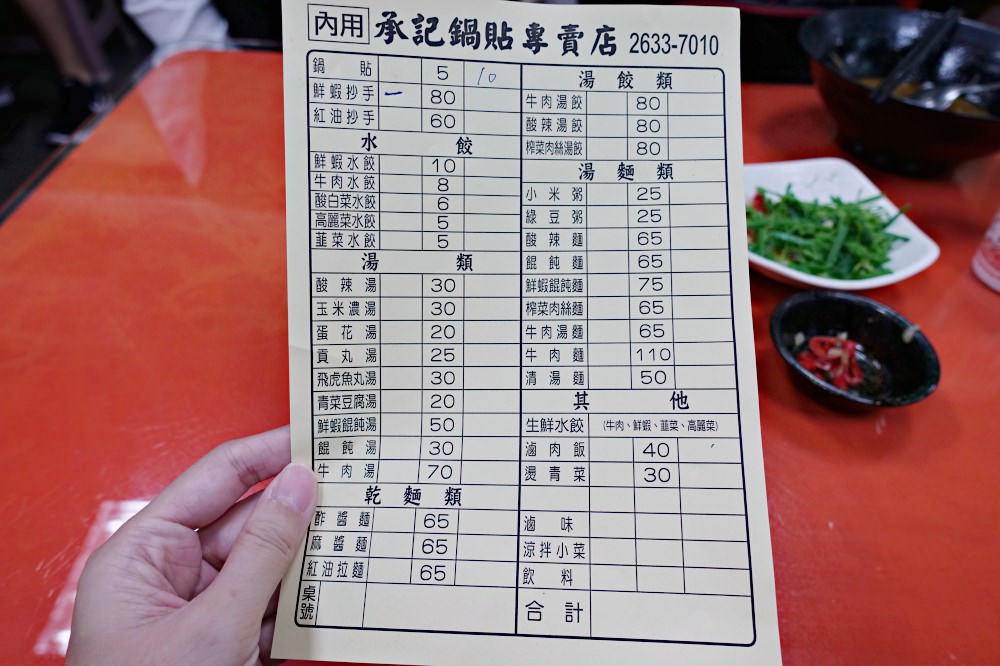 內用 承記鍋貼專賣店 2633-7010
鍋貼 5 10
鮮蝦抄手 一 80
紅油抄手 60
水餃
鮮蝦水餃 10
牛肉水餃 8
酸白菜水餃 6
高麗菜水餃 5
韮菜水餃 5
湯類
酸辣湯 30
玉米濃湯 30
蛋花湯 20
貢丸湯 25
飛虎魚丸湯 30
青菜豆腐湯 20
鮮蝦餛飩湯 50
餛飩湯 30
牛肉湯 70
乾麵類
酢醬麵 65
麻醬麵 65
紅油拉麵 65
桌號
湯餃類
牛肉湯餃 80
酸辣湯餃 80
榨菜肉絲湯餃 80
湯麵類
小米粥 25
綠豆粥 25
酸辣麵 65
餛飩麵 65
鮮蝦餛飩麵 75
榨菜肉絲麵 65
牛肉湯麵 65
牛肉麵 110
清湯麵 50
其他
生鮮水餃 (牛肉、鮮蝦、韮菜、高麗菜)
滷肉飯 40
燙青菜 30
滷味
涼拌小菜
飲料
合計